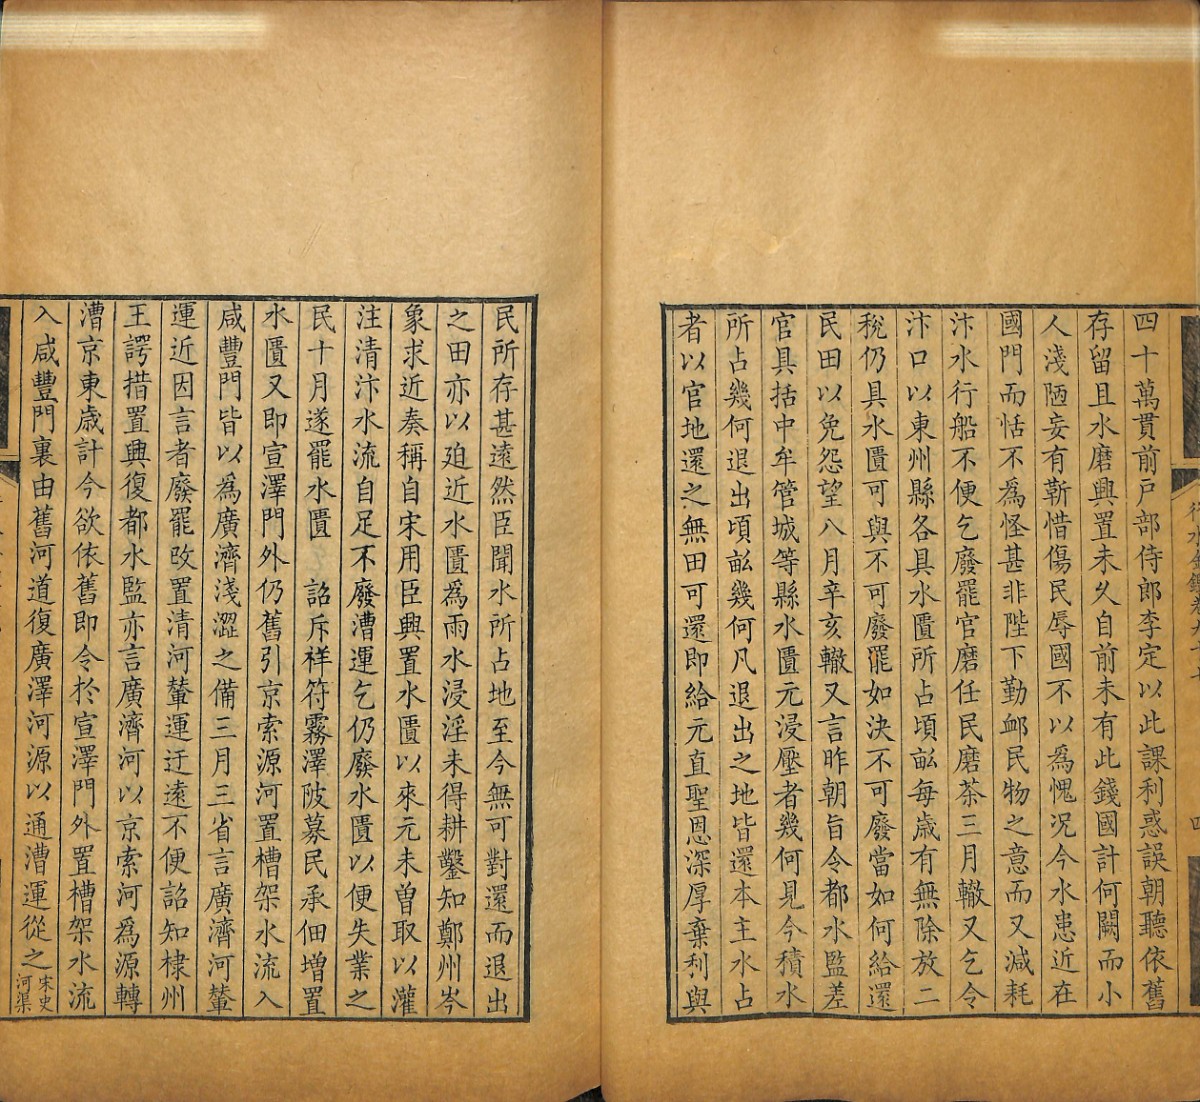 四十萬貫前戸部侍郎李定以此課利惑誤朝聽依舊
存留且水磨興置未久自前未有此錢國計何闕而小
人淺陋妄有靳惜傷民辱國不以為愧况今水患近在
國門而恬不為怪甚非陛下勤卹民物之意而又減耗
汴水行船不便乞廢罷官磨任民磨茶三月轍又乞令
汴口以東州縣各具水匱所占頃畝每歳有無除放二
稅仍具水匱可與不可廢罷如決不可廢當如何給還
民田以免怨望八月辛亥轍又言昨朝旨令都水監差
官具括中牟管城等縣水匱元浸壓者幾何見今積水
所占幾何退出頃畝幾何凡退出之地皆還本主水占
者以官地還之無田可還即給元直聖恩深厚棄利與
民所存甚遠然臣聞水所占地至今無可對還而退出
之田亦以廹近水匱為雨水浸淫未得耕鑿知鄭州岑
象求近奏稱自宋用臣興置水匱以來元未曽取以灌
注清汴水流自足不廢漕運乞仍廢水匱以便失業之
民十月遂罷水匱 詔斥祥符霧澤陂募民承佃増置
水匱又即宣澤門外仍舊引京索源河置槽架水流入
咸豐門皆以為廣濟淺澀之備三月三省言廣濟河輦
運近因言者廢罷改置清河輦運迂遠不便詔知棣州
王諤措置興復都水監亦言廣濟河以京索河為源轉
漕京東歳計今欲依舊即令於宣澤門外置槽架水流
入咸豐門裏由舊河道復廣澤河源以通漕運從之宋史河渠